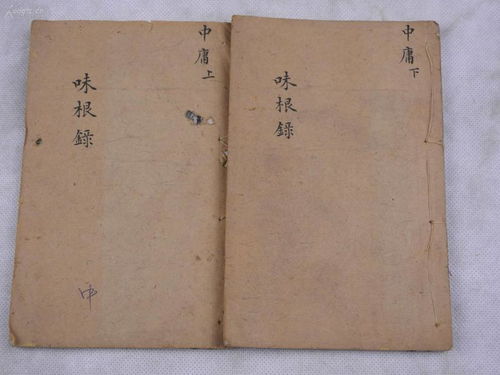 中庸上
味根錄
中
中庸下
味根錄